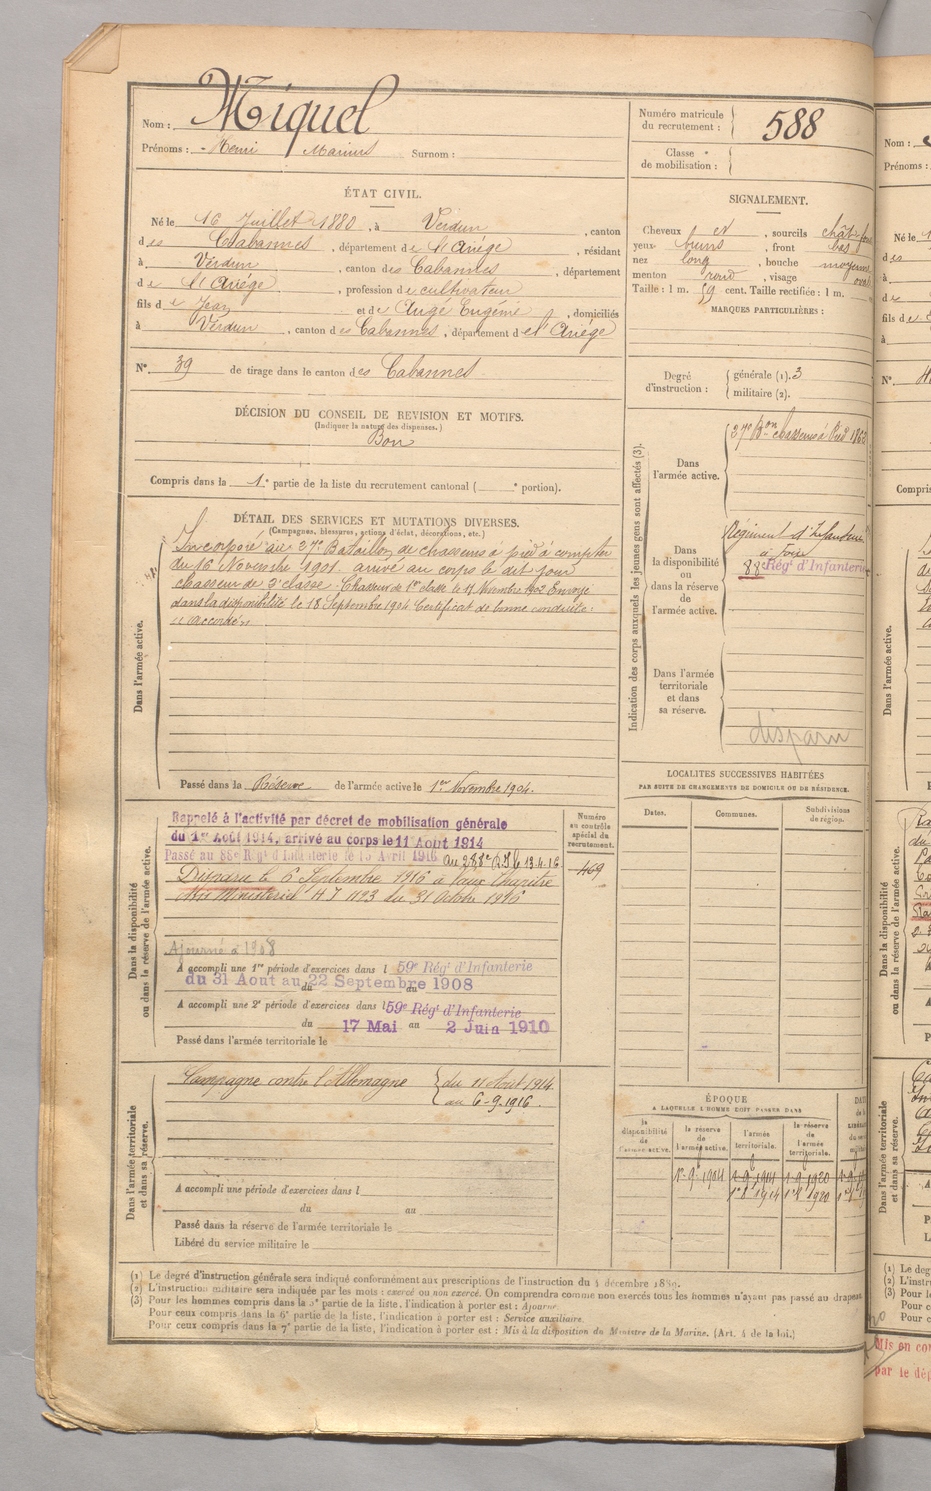 Nom : Miquel
Prénoms : Henri Marius Surnom :
Numéro matricule du recrutement : 588
Classe de mobilisation :
ÉTAT CIVIL.
Né le 16 Juillet 1880, à Verdun, canton
des Cabannes, département de l'Ariége, résidant
à Verdun, canton des Cabannes, département
de l'Ariége, profession de cultivateur
fils de Jean et de Augé Eugénie, domiciliés
à Verdun, canton des Cabannes, département de l'Ariége
N° 39 de tirage dans le canton des Cabannes
SIGNALEMENT.
Cheveux et, sourcils chât
yeux bruns, front bas
nez long, bouche moyenne
menton rond, visage oval
Taille : 1 m. 59 cent. Taille rectifiée : 1 m.
MARQUES PARTICULIÈRES :
DÉCISION DU CONSEIL DE REVISION ET MOTIFS.
(Indiquer la nature des dispenses.)
Bon
Compris dans la 1e partie de la liste du recrutement cantonal ( e portion).
Degré d'instruction :
générale (1). 3
militaire (2).
DÉTAIL DES SERVICES ET MUTATIONS DIVERSES.
(Campagnes, blessures, actions d'éclat, décorations, etc.)
Dans l'armée active.
Incorporé au 27e Bataillon de chasseurs à pied à compter
du 16 Novembre 1901. arrivé au corps le dit jour
chasseur de 2e classe. Chasseur de 1re classe le 17 Novembre 1902 Envoyé
dans la disponibilité le 18 Septembre 1904 Certificat de bonne conduite :
"Accordé"
Passé dans la Réserve de l'armée active le 1er Novembre 1904.
Indication des corps auxquels les jeunes gens sont affectés (3).
Dans l'armée active.
27e Bon chasseurs à Pied
Dans la disponibilité ou dans la réserve de l'armée active.
Régiment d'Infanterie
à Foix
88e Régt d'Infanterie
Dans l'armée territoriale et dans sa réserve.
disparu
LOCALITES SUCCESSIVES HABITÉES
PAR SUITE DE CHANGEMENTS DE DOMICILE OU DE RÉSIDENCE.
Dates. Communes. Subdivisions de région.
Dans la disponibilité ou dans la réserve de l'armée active.
Rappelé à l'activité par décret de mobilisation générale
du 1er Août 1914, arrivé au corps le 11 Août 1914
Passé au 88e Régt d'Infanterie le 13 Avril 1916 au 288e R.I. le 13.4.16
Disparu le 6 Septembre 1916 à Vaux Chapitre
Avis Ministériel HJ 1123 du 31 Octobre 1916
Numéro au contrôle spécial du recrutement.
469
Ajourné à 1908
A accompli une 1re période d'exercices dans l 59e Régt d'Infanterie
du 31 Aout au 22 Septembre 1908
A accompli une 2e période d'exercices dans l 59e Régt d'Infanterie
du 17 Mai au 2 Juin 1910
Passé dans l'armée territoriale le
Dans l'armée territoriale et dans sa réserve.
Campagne contre l'Allemagne du 11 Août 1914
au 6-9-1916.
A accompli une période d'exercices dans l
du au
Passé dans la réserve de l'armée territoriale le
Libéré du service militaire le
ÉPOQUE
A LAQUELLE L'HOMME DOIT PASSER DANS
la disponibilité de l'armée active.
la réserve de l'armée active.
l'armée territoriale.
la réserve de l'armée territoriale.
(1) Le degré d'instruction générale sera indiqué conformément aux prescriptions de l'instruction du 4 décembre 1889.
(2) L'instruction militaire sera indiquée par les mots : exercé ou non exercé. On comprendra comme non exercés tous les hommes n'ayant pas passé au drapeau
(3) Pour les hommes compris dans la 5e partie de la liste, l'indication à porter est : Ajourné.
Pour ceux compris dans la 6e partie de la liste, l'indication à porter est : Service auxiliaire.
Pour ceux compris dans la 7e partie de la liste, l'indication à porter est : Mis à la disposition du Ministre de la Marine. (Art. 4 de la loi.)
Mis en
par le dé